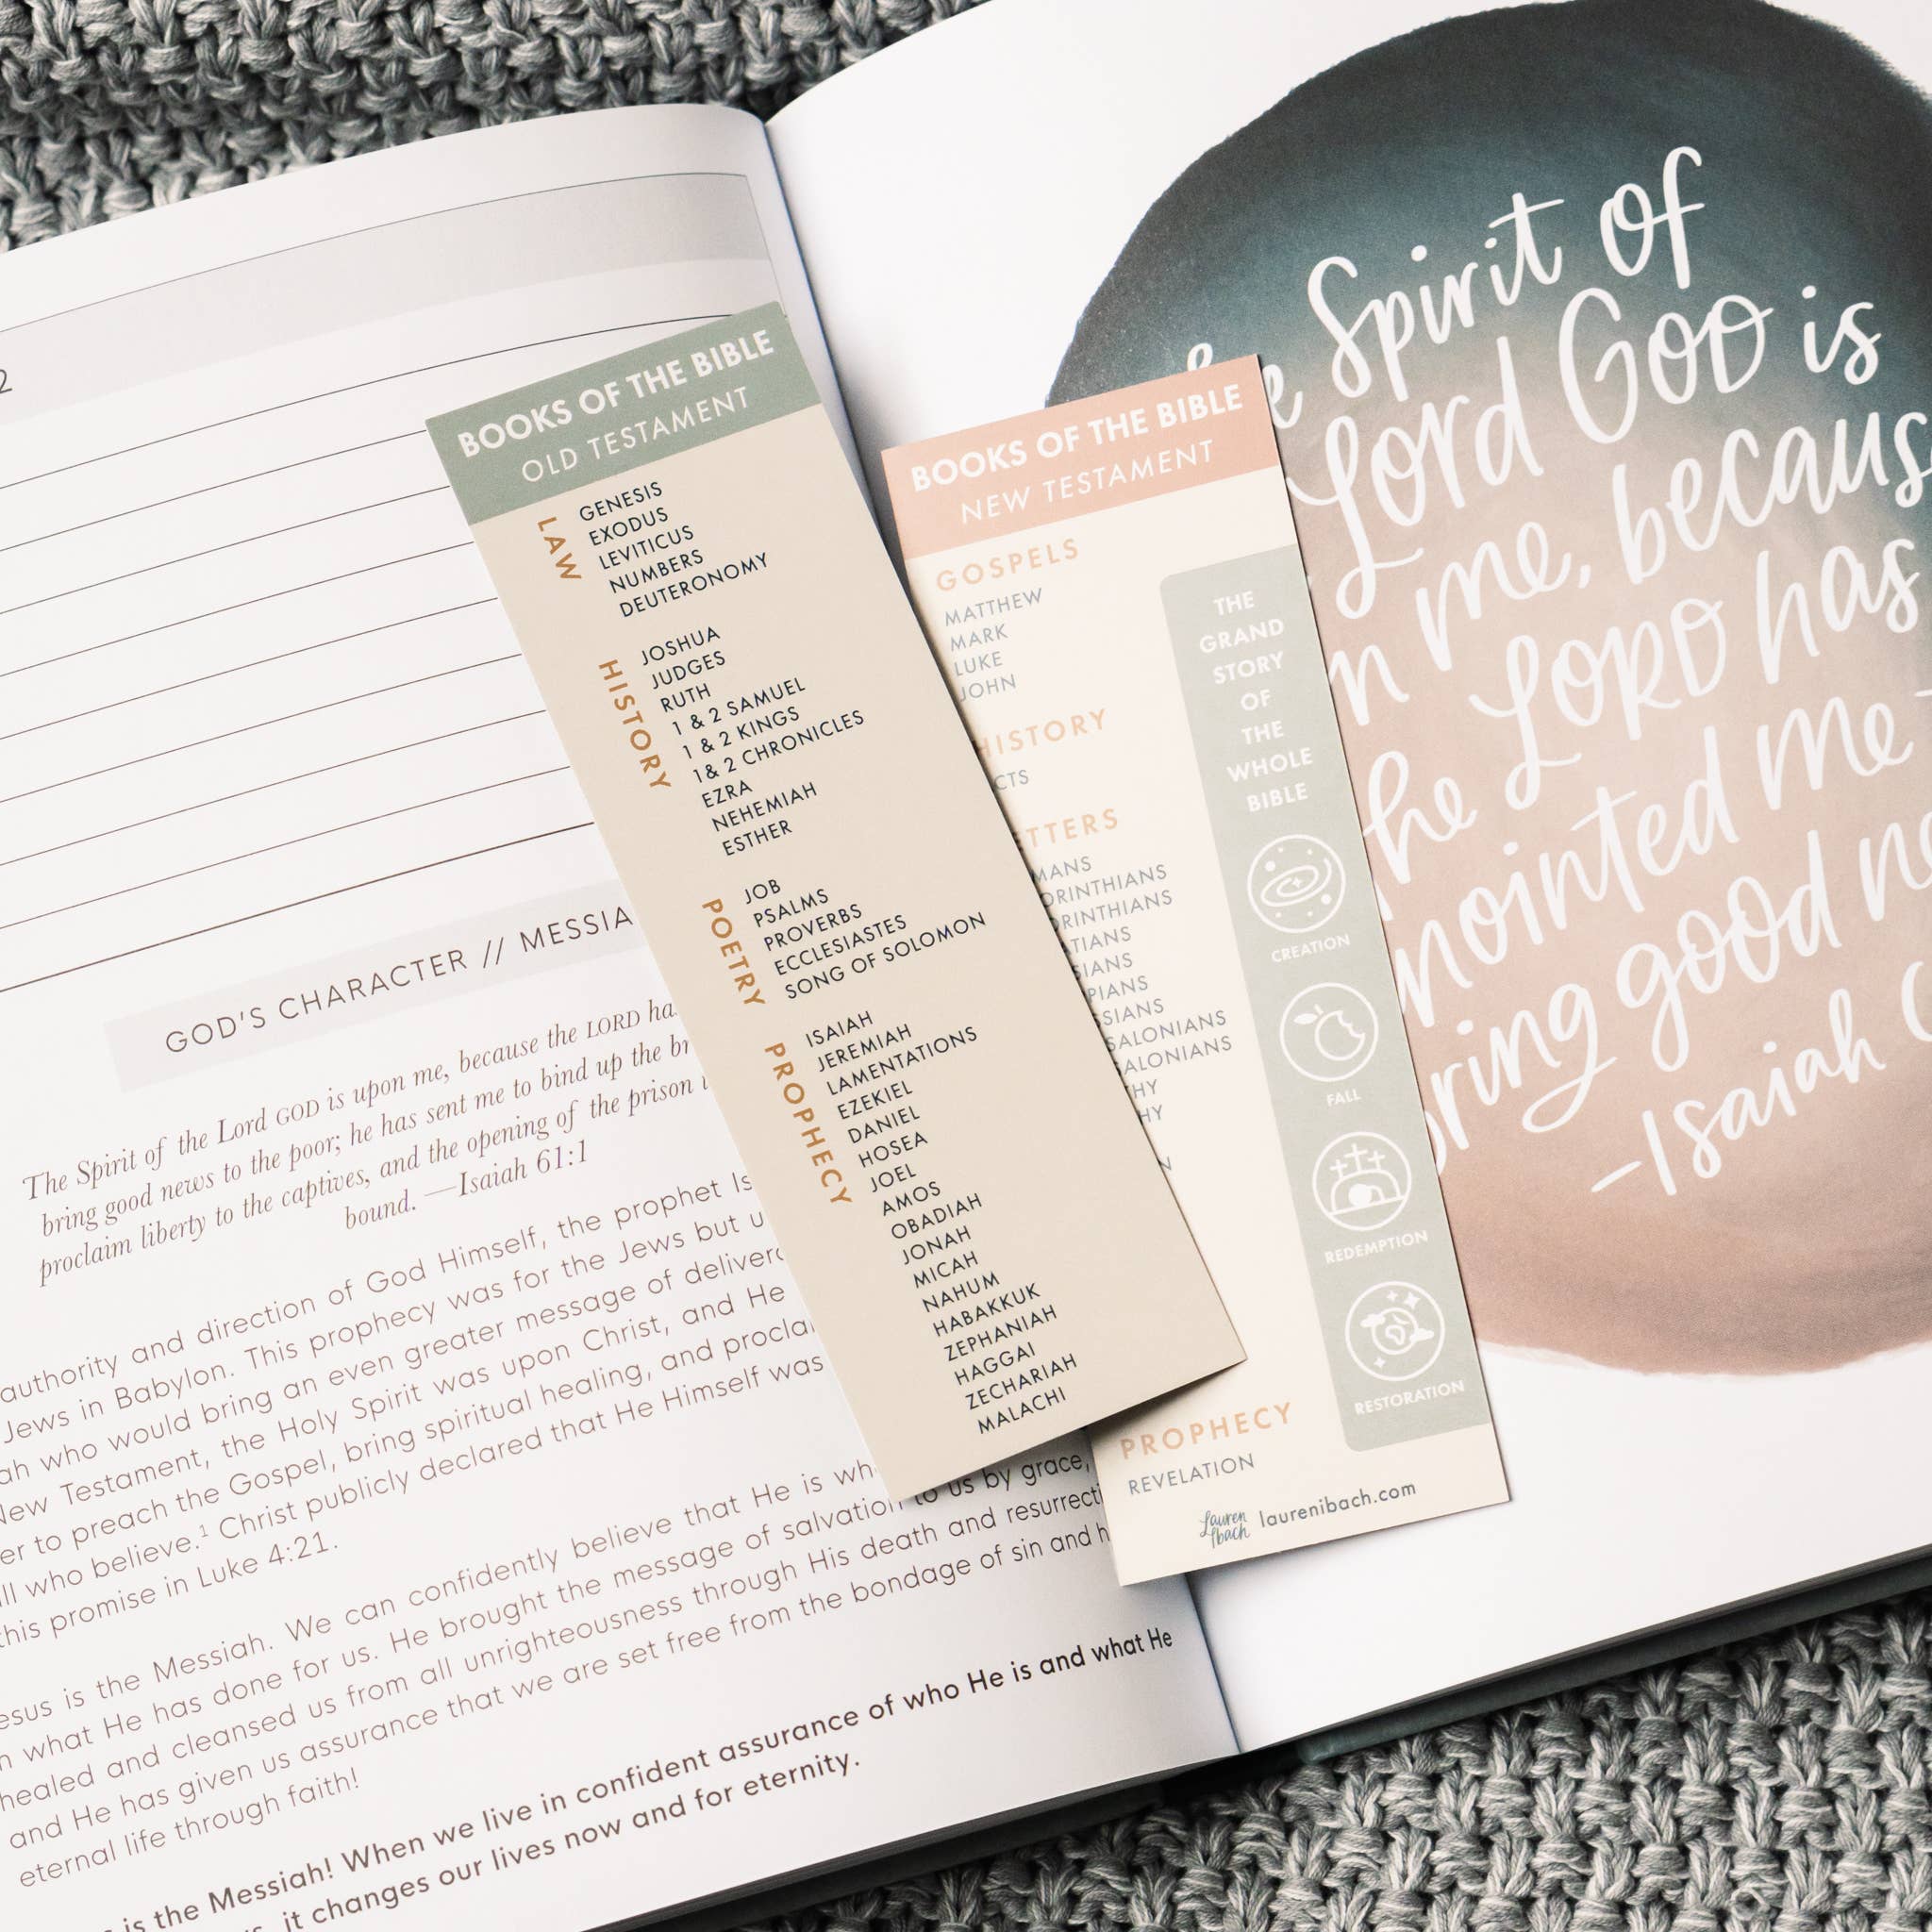 2
GOD'S CHARACTER //
The Spirit of the Lord GOD is upon me, because the LORD
bring good news to the poor; he has sent me to bind up the
proclaim liberty to the captives, and the opening of the prison
bound. —Isaiah 61:1
authority and direction of God Himself, the prophet
Jews in Babylon. This prophecy was for the Jews but
who would bring an even greater message of
New Testament, the Holy Spirit was upon Christ, and He
to preach the Gospel, bring spiritual healing, and
who believe.¹ Christ publicly declared that He Himself was
this promise in Luke 4:21.
is the Messiah. We can confidently believe that He is
what He has done for us. He brought the message of salvation to us by grace,
healed and cleansed us from all unrighteousness through His death and
and He has given us assurance that we are set free from the bondage of sin and
eternal life through faith!
is the Messiah! When we live in confident assurance of who He is and what He
it changes our lives now and for eternity.
BOOKS OF THE BIBLE
OLD TESTAMENT
LAW
GENESIS
EXODUS
LEVITICUS
NUMBERS
DEUTERONOMY
HISTORY
JOSHUA
JUDGES
RUTH
1 & 2 SAMUEL
1 & 2 KINGS
1& 2 CHRONICLES
EZRA
NEHEMIAH
ESTHER
POETRY
JOB
PSALMS
PROVERBS
ECCLESIASTES
SONG OF SOLOMON
PROPHECY
ISAIAH
JEREMIAH
LAMENTATIONS
EZEKIEL
DANIEL
HOSEA
JOEL
AMOS
OBADIAH
JONAH
MICAH
NAHUM
HABAKKUK
ZEPHANIAH
HAGGAI
ZECHARIAH
MALACHI
BOOKS OF THE BIBLE
NEW TESTAMENT
GOSPELS
MATTHEW
MARK
LUKE
JOHN
HISTORY
PROPHECY
REVELATION
Lauren
Ibach
laurenibach.com
THE
GRAND
STORY
OF
THE
WHOLE
BIBLE
CREATION
FALL
REDEMPTION
RESTORATION
Spirit of
Lord GOD is
me,
LORD has
me
good
—Isaiah